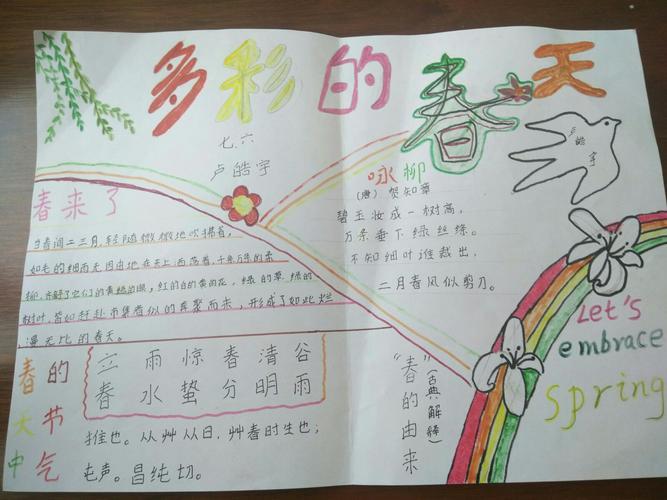 多彩的春天
七六
卢皓宇
皓宇
春来了
当春间二三月,轻随微微地吹拂着,
如毛的细雨无因由地在天上洒落着,千条万条的柔
柳,齐舒了它们的黄绿的眼,红的白的黄的花,绿的草,绿的
树叶,皆如赶赴市集者似的奔聚而来,形成了如此烂
漫无比的春天。
咏柳
(唐) 贺知章
碧玉妆成一树高,
万条垂下绿丝绦。
不知细叶谁裁出,
二月春风似剪刀。
春天中的节气
立春
雨水
惊蛰
春分
清明
谷雨
"春"的由来
(古典解释)
推也。从艸从日,艸春时生也;
屯声。昌纯切。
Let's
embrace
spring